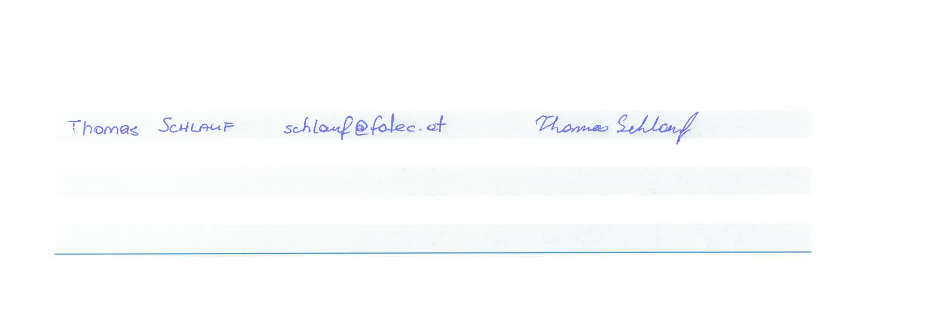 Thomas SCHLAUF schlauf@fotec.at Thomas Schlauf